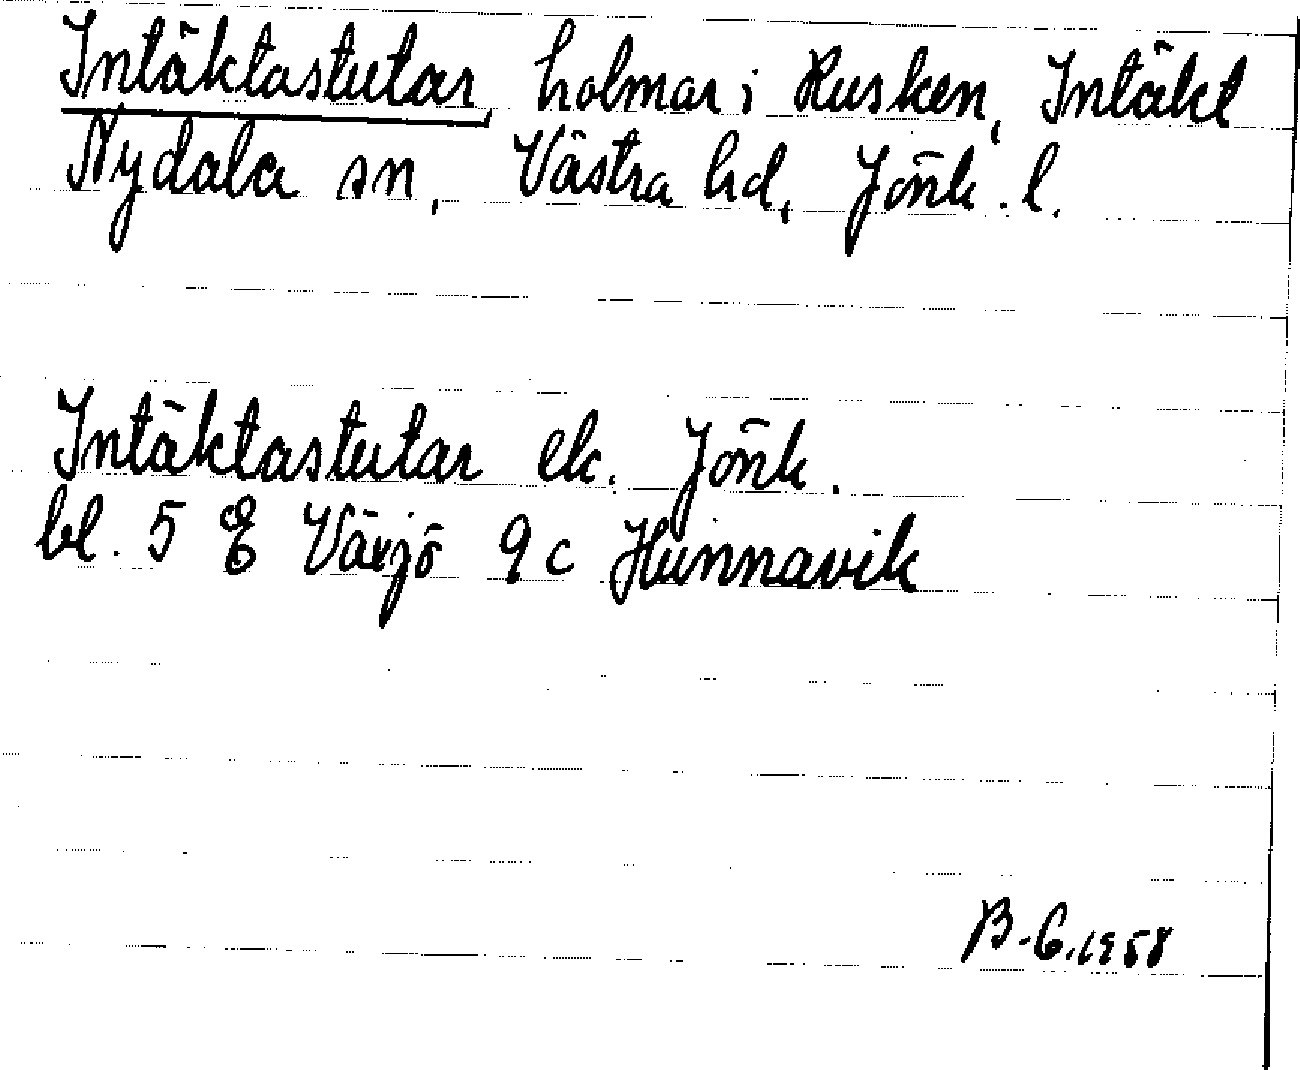 Intäktastutar, holmar i Rusken, Intäkt
Nydala sn, Västra hd, Jönk. l.
Intäktastutar ek. Jönk.
bl. 5 E Växjö 9 c Hunnavik
B-G. 1958